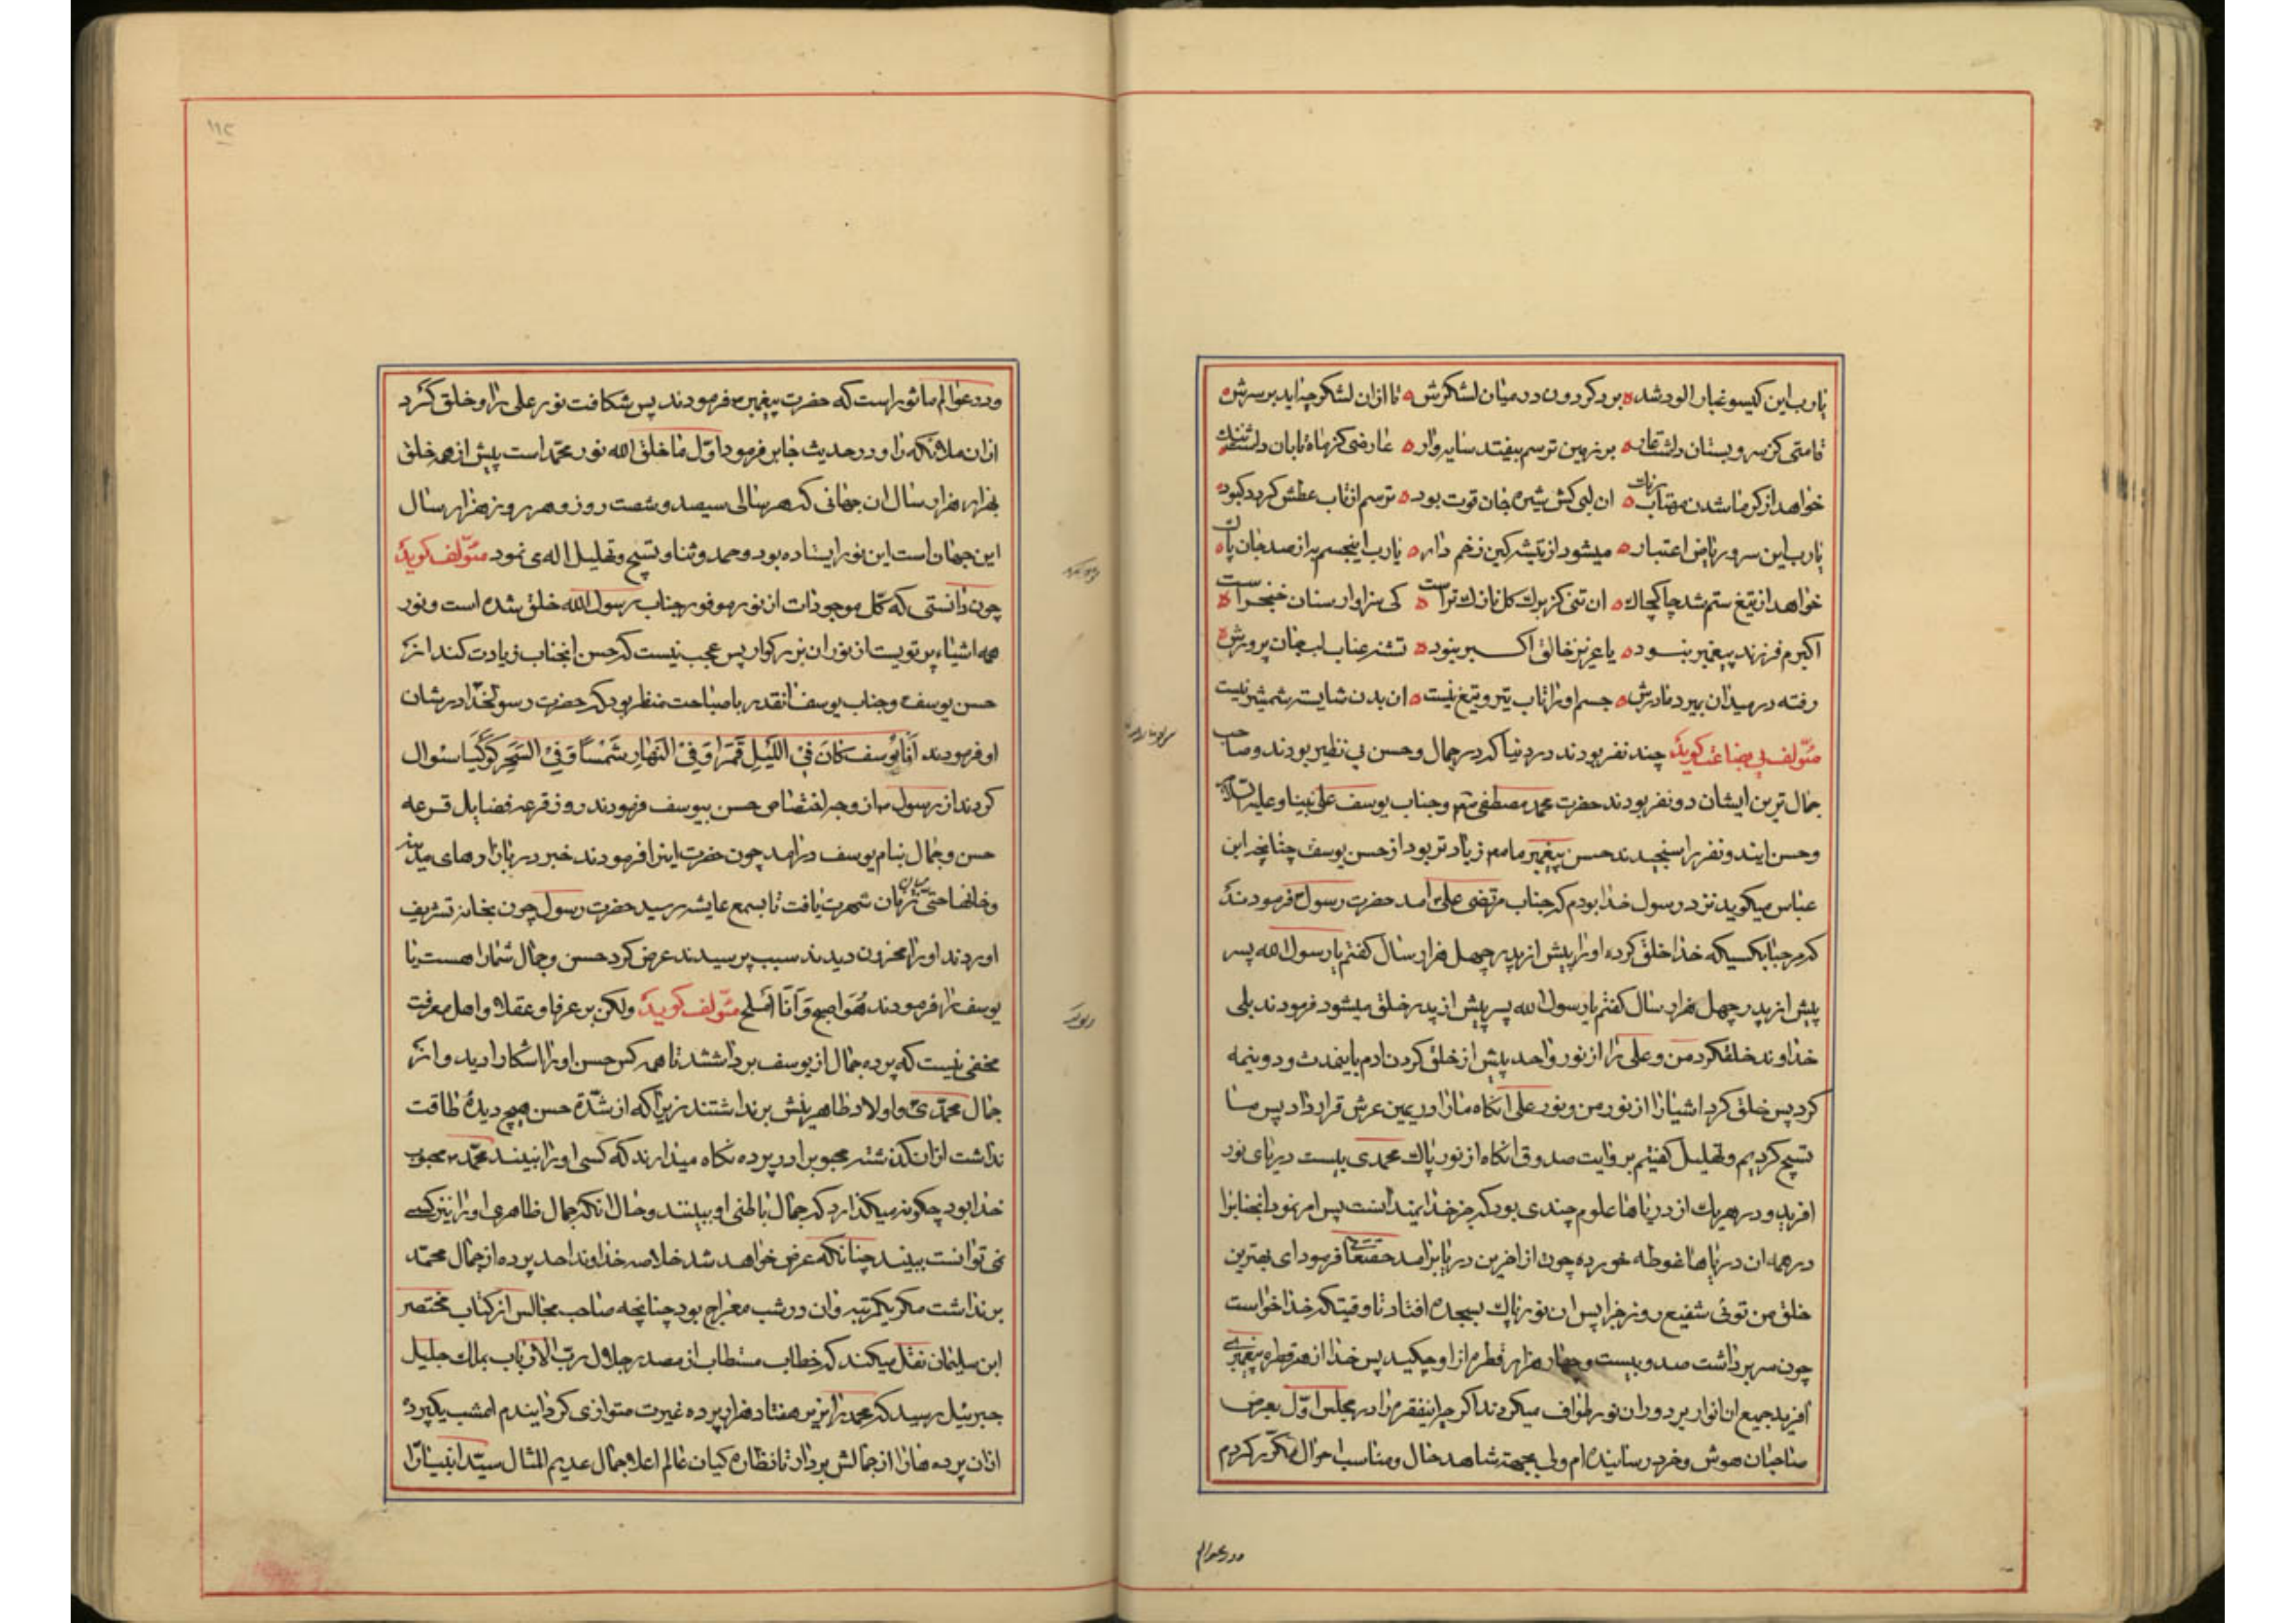 یارب این کیسو غبار الود شده برد کردون در میان لشکرش تا ازان لشکر چه اید بر سرش
قامتی کز سرو بستان داشت عار بر زمین ترسم بیفتد سایه وار عارضی کز ماه تابان داشت ننک
خواهد از کرما شدن مهتاب رنک ان لبی کش شیره جان قوت بود ترسم از تاب عطش کردد کبود
یارب این سرو ریاض اعتبار میشود از تیشه کین زخم دار یارب اینجسم به از صد جان پاک
خواهد از تیغ ستم شد چاکچاک ان تنی کز برک کل نازک تراست کی سزاوار سنان خنجراست
اکبرم فرزند پیغمبر نبود یا عزیز خالق اکبر نبود تشنه عناب لب جان پرورش
رفته در میدان بمیرد مادرش جسم اورا تاب تیر و تیغ نیست ان بدن شایسته شمشیر نیست
مؤلف بی بضاعت کوید چند نفر بودند در دنیا که در جمال و حسن بی نظیر بودند و صاحب
جمال ترین ایشان دو نفر بودند حضرت محمد مصطفی و جناب یوسف علی نبینا و علیه السلام
و حسن ایندو نفر را سنجیدند حسن پیغمبر ما زیادتر بود از حسن یوسف چنانچه ابن
عباس میکوید نزد رسول خدا بودم که جناب مرتضی علی امد حضرت رسول فرمودند
که مرحبا بکسیکه خدا خلق کرده اورا پیش از پدر چهل هزار سال کفتم یا رسول الله پسر
پیش از پدر چهل هزار سال کفتم یا رسول الله پسر پیش از پدر خلق میشود فرمودند بلی
خداوند خلق کرد من و علی را از نور واحد پیش از خلق کردن ادم باینمدت و دو نیمه
کرد پس خلق کرد اشیا را از نور من و نور علی انکاه مارا در یمین عرش قرار داد پس ما
تسبیح کردیم و تهلیل کفتیم بروایت صدوق انکاه از نور پاک محمدی بیست دریای نور
افرید و در هر یک از دریاها علوم چندی بود که جز خدا نمیدانست پس امر نمود انجناب را
در همه ان دریاها غوطه خورده چون از اخرین دریا برامد حقتعالی فرمود ای بهترین
خلق من توئی شفیع روز جزا پس ان نور پاک بسجده افتاد تا وقیتکه خدا خواست
چون سر برداشت صد و بیست و چهار هزار قطره از او چکید پس خدا از هر قطره پیغمبری
افرید جمیع ان انوار بر دور ان نور طواف میکردند اکر چه اینفقره را در مجلس اول بعرض
صاحبان هوش و خرد رسانیده ام ولی بجهة شاهد حال و مناسب احوال مکرر کردم
ودر عوالم
ودر عوالم ماثور است که حضرت پیغمبر فرمودند پس شکافت نور علی را و خلق کرد
ازان ملائکه را و در حدیث جابر فرمود اول ما خلق الله نور محمد است پیش از همه خلق
بهزار هزار سال ان جهانی که هر سالی سیصد و شصت روز و هر روز هزار سال
این جهان است این نور ایستاده بود و حمد و ثنا و تسبیح و تهلیل الهی نمود مؤلف کوید
چون دانستی که کل موجودات از نور موفور جناب رسول الله خلق شده است و نور
همه اشیاء پرتویست از نور ان بزرکوار پس عجب نیست که حسن انجناب زیادت کند از
حسن یوسف و جناب یوسف انقدر با صباحت منظر بود که حضرت رسولخدا در شان
او فرمودند ان یوسف کان فی اللیل قمرا و فی النهار شمسا و فی السحر کوکبا سئوال
کردند از رسول از وجه اختصاص حسن بیوسف فرمودند روز قرعه فضایل قرعه
حسن و جمال بنام یوسف درامد چون حضرت اینرا فرمودند خبر در بازارهای مدینه
و خانها حتی میان زنان شهرت یافت تا بسمع عایشه رسید حضرت رسول چون بخانه تشریف
اوردند اورا محزون دیدند سبب پرسیدند عرض کرد حسن و جمال شمارا هست یا
یوسف را فرمودند هو اصبح و انا املح مؤلف کوید ولکن بر عرفا و عقلا و اهل معرفت
مخفی نیست که پرده جمال از یوسف برداشتند تا همه کس حسن اورا اشکارا دید و از
جمال محمدی و اولاد طاهرینش برنداشتند زیرا که از شدة حسن هیچ دیدهٔ طاقت
نداشت ازان کذشته محبوبرا در پرده نکاه میدارند که کسی اورا نبیند محمد محبوب
خدا بود چکونه میکذارد که جمال باطنی او ببینند و حال انکه جمال ظاهری اورا نیز کسی
نمی توانست ببیند چنانکه عرض خواهد شد خلاصه خداوند احد پرده از جمال محمد
برنداشت مکر یکمرتبه و ان در شب معراج بود چنانچه صاحب مجالس از کتاب مختصر
ابن سلیمان نقل میکند که خطاب مستطاب از مصدر جلال رب الارباب بملک جلیل
جبرئیل رسید که محمد را بزیر هفتاد هزار پرده غیرت متواری کردایندم امشب یکپرده
ازان پرده هارا از جمالش بردار تا نظاره کیان عالم اعلا جمال عدیم المثال سید انبیارا